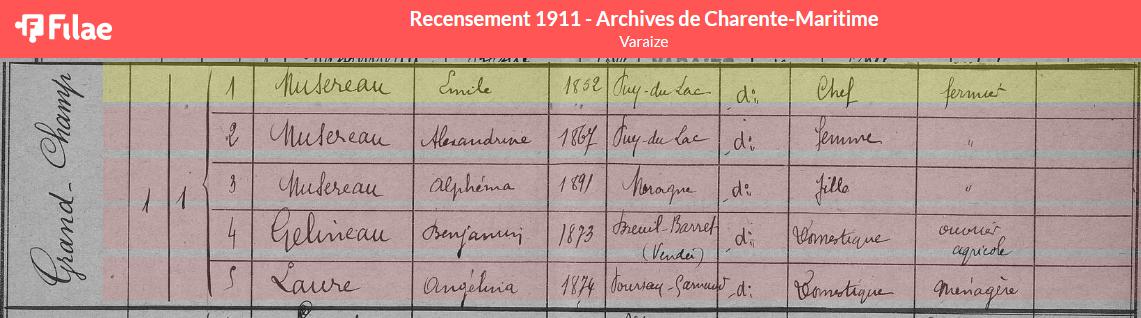 Filae
Recensement 1911 - Archives de Charente-Maritime
Varaize
Grand-Champ
1 1
1 Musereau Emile 1852 Puy-du-Lac d: Chef fermier
2 Musereau Alexandrine 1867 Puy-du-Lac d: femme "
3 Musereau Alphéma 1891 Moragne d: fille "
4 Gelineau Benjamin 1873 Breuil-Barret d: Domestique ouvrier
(Vendée) agricole
5 Laure Angélina 1874 d: Domestique ménagère